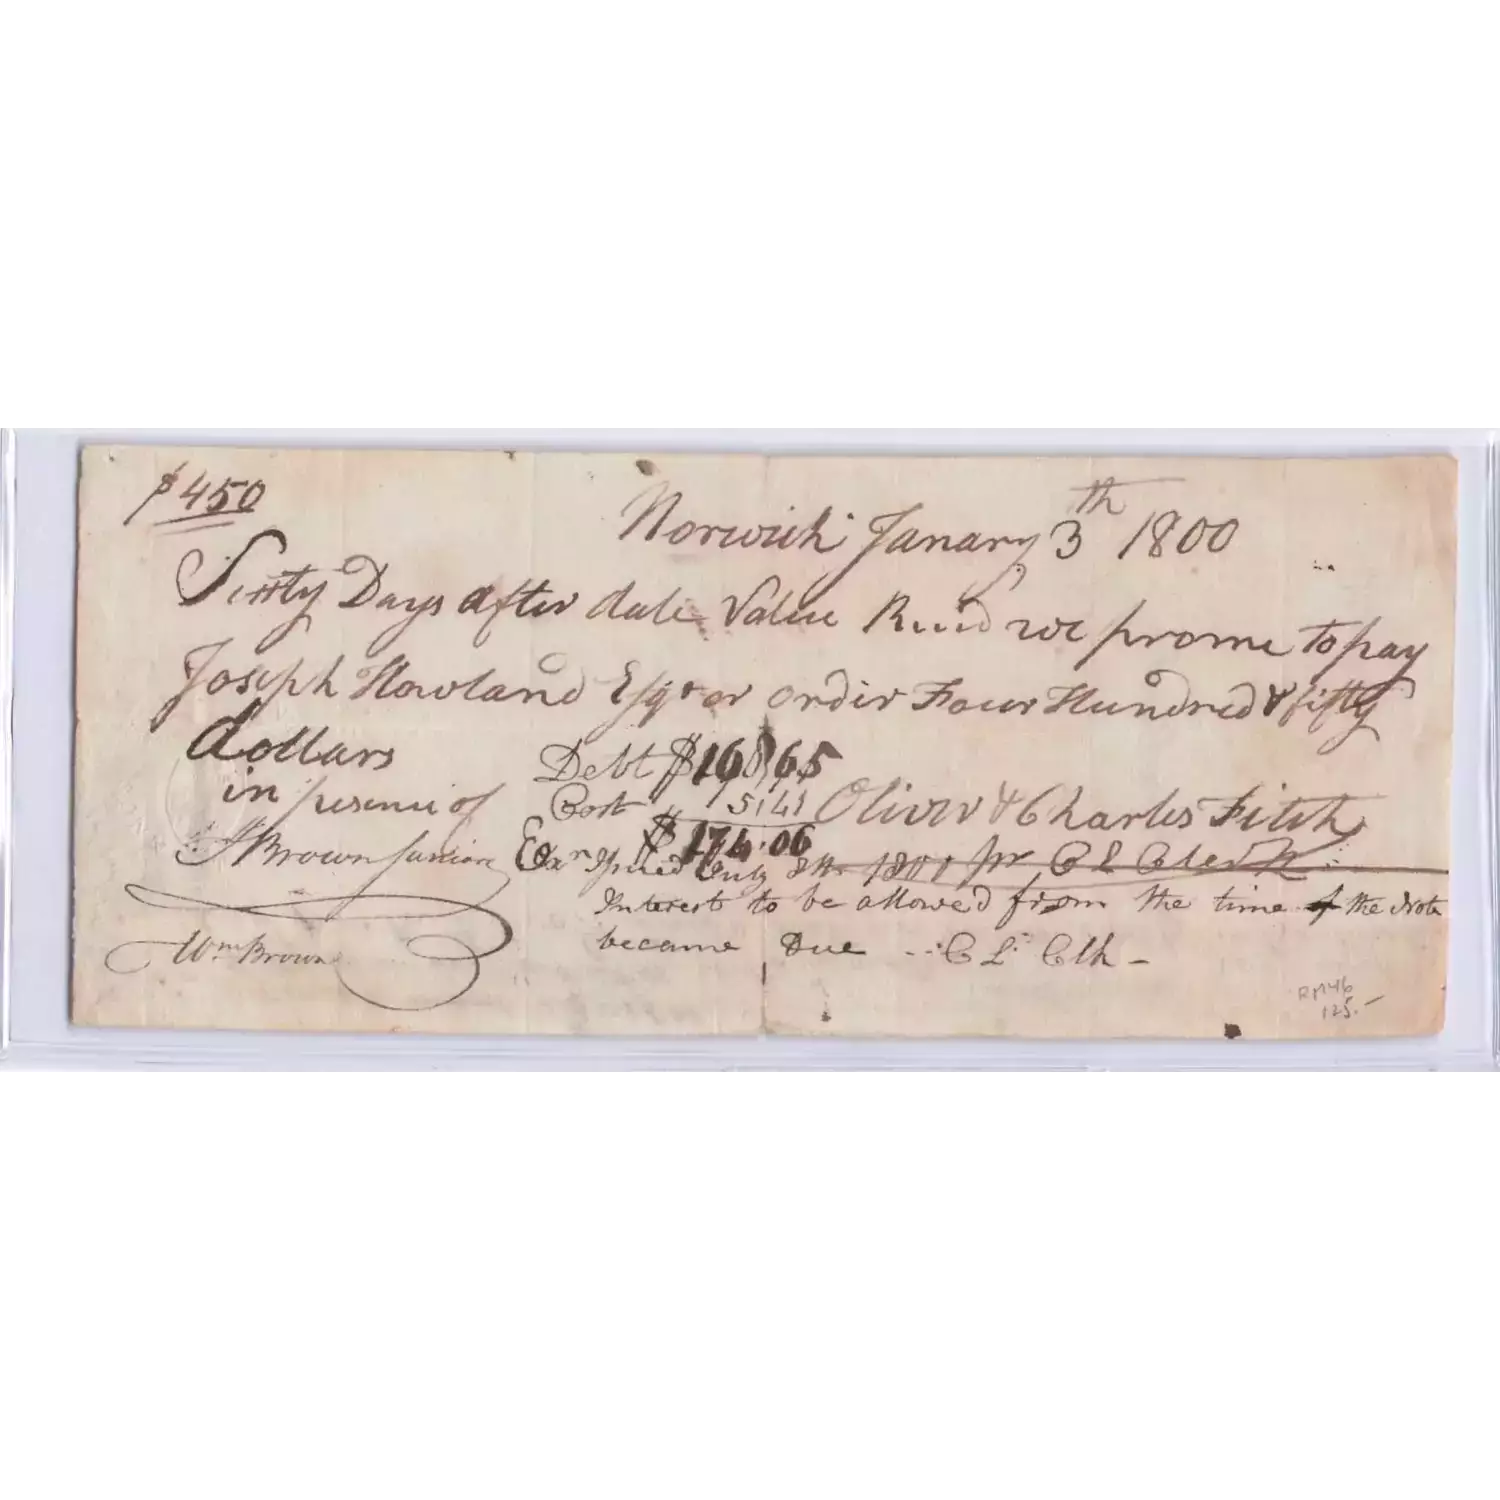 $450
Norwich January 3th 1800
Sixty Days after date Value Recd we promise to pay
Joseph Howland Esqr or order Four Hundred & fifty
dollars
in presence of
Debt $168,65
Cost 5,41
$174.06
Oliver & Charles Fitch
Brown Junior
Exon Issued July 8th 1801 pr C L Clerk
Interest to be allowed from the time of the Note
became Due C L Clk -
Wm Brown
RM46
125.-